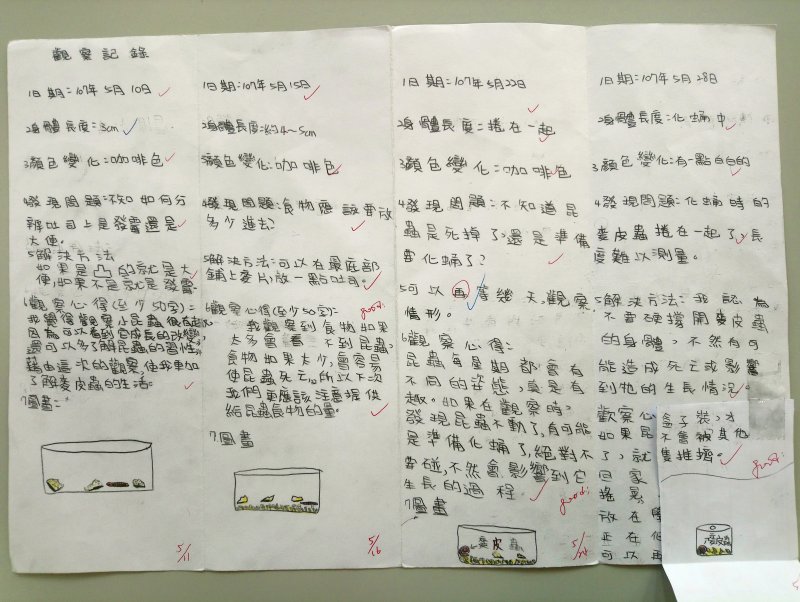 觀察記錄
1日期:107年5月10日
2身體長度:3cm
3顏色變化:咖啡色
4發現問題:不知如何分
辨吐司上是發霉還是
大便。
5解決方法
如果是凸的就是大
便,如果不是就是發霉。
6觀察心得(至少50字):
我覺得觀察小昆蟲很有趣
因為可以看到它成長的改變
還可以多了解昆蟲的習性,
藉由這次的觀察使我更加
了解麥皮蟲的生活。
7圖畫:
5/11
1日期:107年5月15日
2身體長度:約4~5cm
3顏色變化:咖啡色
4發現問題:食物應該要放
多少進去?
5解決方法:可以在最底部
鋪上麥片,放一點吐司。
6觀察心得(至少50字): good!
我觀察到食物如果
太多會看不到昆蟲,
食物如果太少,會容易
使昆蟲死亡,所以下次
我們更應該注意提供
給昆蟲食物的量。
7.圖畫
5/16
1日期:107年5月22日
2身體長度:捲在一起
3顏色變化:咖啡色
4發現問題:不知道昆
蟲是死掉了,還是準備
要化蛹了?
5可以再等幾天,觀察
情形。
6觀察心得:
昆蟲每星期都會有
不同的姿態,真是有
趣。如果在觀察時,
發現昆蟲不動了,有可能
是準備化蛹了,絕對不
要碰,不然會影響到它
生長的過程 good!
7圖畫
麥皮蟲
5/24
1日期:107年5月28日
2身體長度:化蛹中
3顏色變化:有一點白白的
4發現問題:化蛹時的
麥皮蟲捲在一起了,長
度難以測量。
5解決方法:我認為
不要硬撐開麥皮蟲
的身體,不然有可
能造成死亡或影響
到牠的生長情況。
觀察心
如果昆
了,就
回家
搖晃,
放在學
正在化
可以再
盒子裝,才
不會被其他
隻推擠。
good!
麥皮蟲